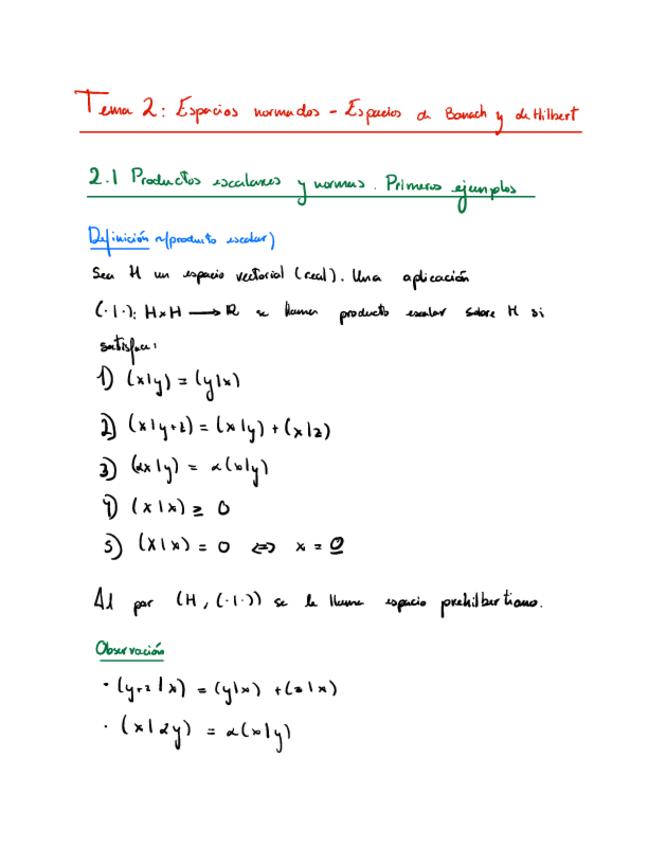 Tema 2: Espacios normados - Espacios de Banach y de Hilbert
2.1 Productos escalares y normas. Primeros ejemplos
Definición (producto escalar)
Sea H un espacio vectorial (real). Una aplicación
(·|·): H×H ⟶ ℝ se llama producto escalar sobre H si
satisface:
1) (x|y) = (y|x)
2) (x|y+z) = (x|y) + (x|z)
3) (αx|y) = α(x|y)
4) (x|x) ≥ 0
5) (x|x) = 0 ⇔ x = 0
Al par (H, (·|·)) se le llama espacio prehilbertiano.
Observación
· (y+z|x) = (y|x) + (z|x)
· (x|αy) = α(x|y)